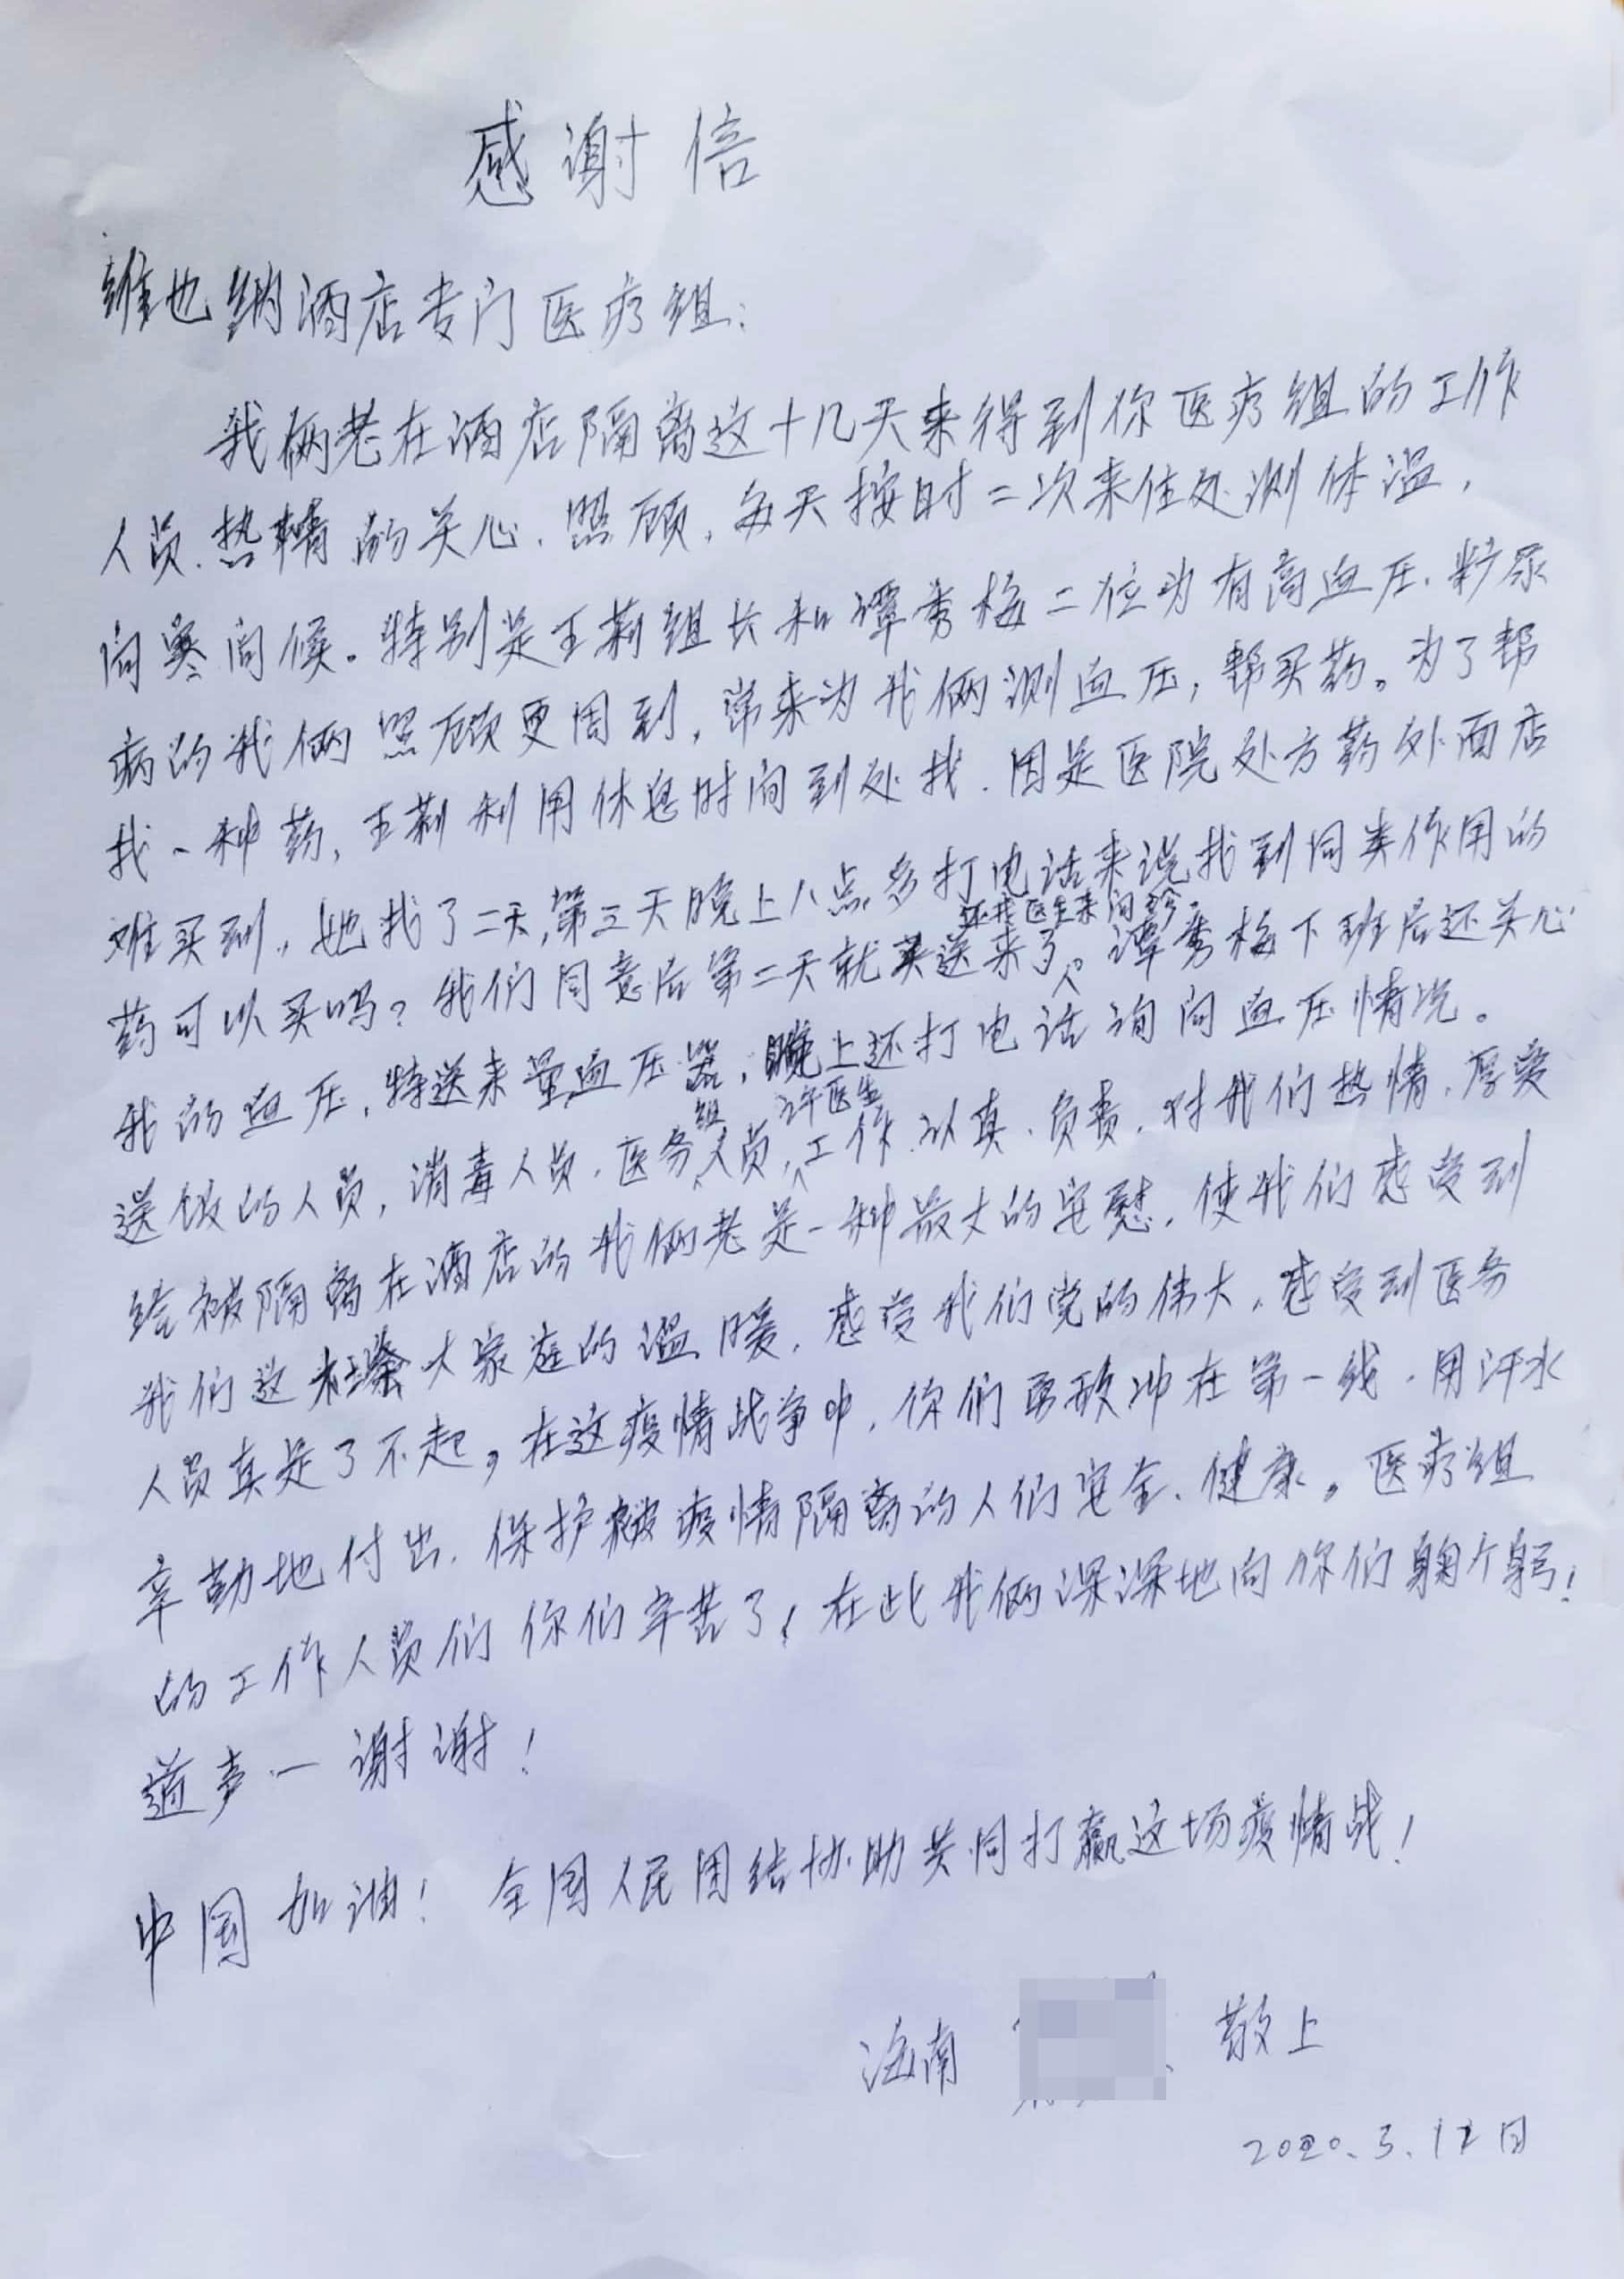 感谢信
维也纳酒店专门医疗组:
我俩老在酒店隔离这十几天来得到你医疗组的工作
人员.热情的关心.照顾,每天按时二次来住处测体温,
问寒问候。特别是王莉组长和谭秀梅二位为有高血压.糖尿
病的我俩照顾更周到,常来为我俩测血压,帮买药。为了帮
找一种药,王莉利用休息时间到处找.因是医院处方药外面店
难买到,她找了二天,第三天晚上八点多打电话来说找到同类作用的
药可以买吗?我们同意后第二天就买送来了,还找医生来问诊。谭秀梅下班后还关心
我的血压,特送来量血压器,晚上还打电话询问血压情况。
送饭的人员,消毒人员.医务组人员,许医生工作.认真.负责.对我们热情.厚爱
给被隔离在酒店的我俩老是一种最大的安慰,使我们感受到
我们这社会大家庭的温暖.感受我们党的伟大,感受到医务
人员真是了不起,在这疫情战争中,你们勇敢冲在第一线.用汗水
辛勤地付出.保护被疫情隔离的人们安全、健康。医疗组
的工作人员们你们辛苦了!在此我俩深深地向你们鞠个躬!
道声一谢谢!
中国加油!全国人民团结协助共同打赢这场疫情战!
海南 敬上
2020.3.12日